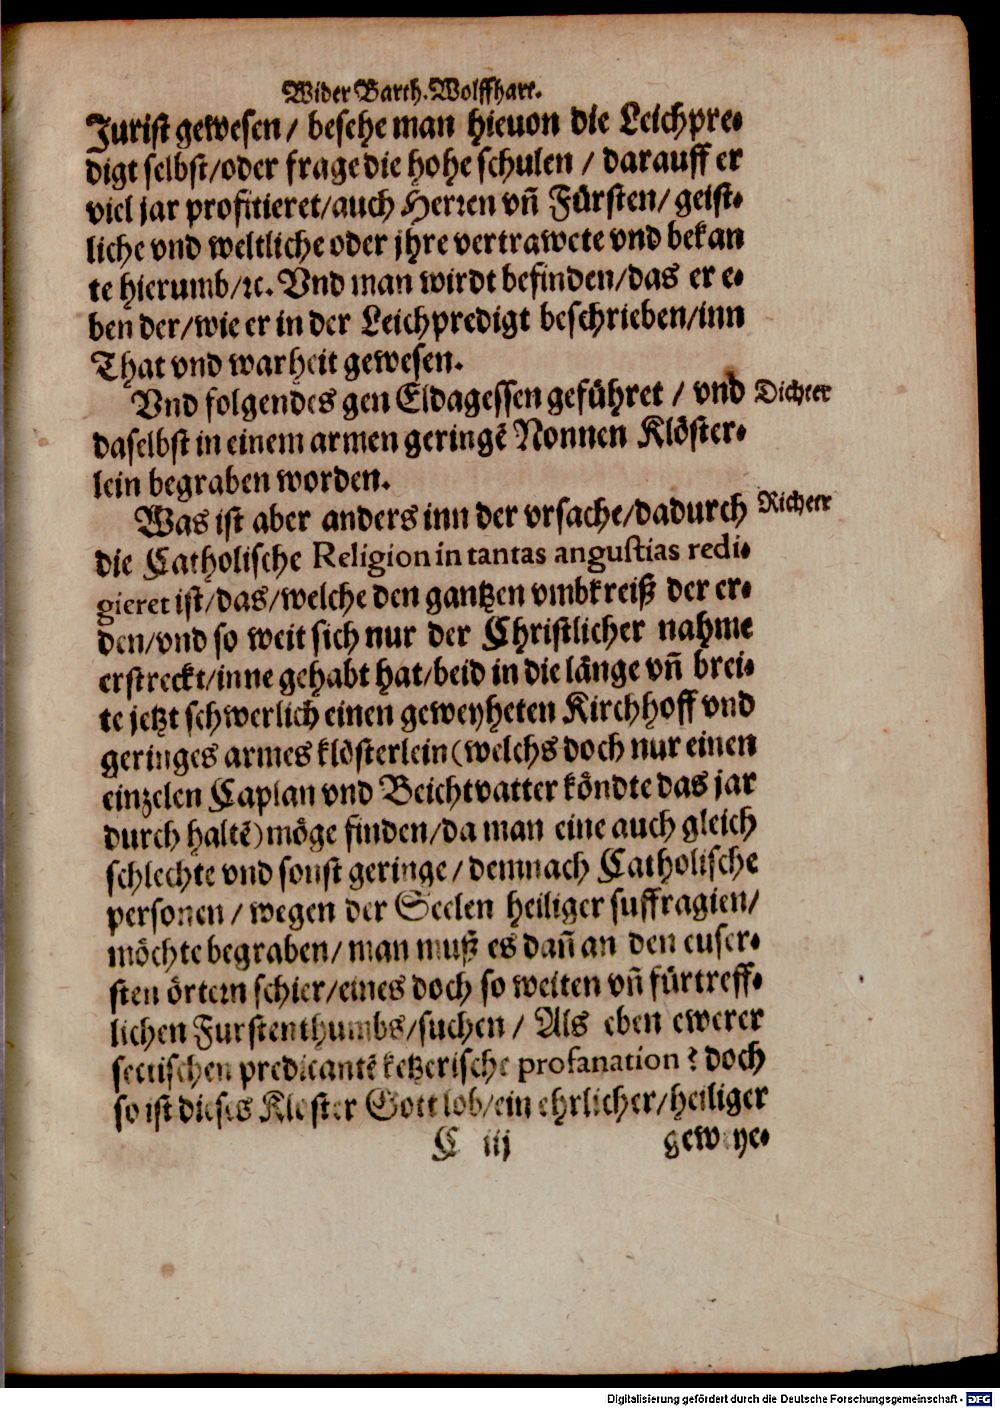 Wider Barth. Wolffhart.
Jurist gewesen / besehe man hieuon die Leichpre⸗
digt selbst/oder frage die hohe schulen / darauff er
viel jar profitieret/auch Herren vñ Fürsten/ geist⸗
liche vnd weltliche oder jhre vertrawete vnd bekan
te hierumb/ꝛc. Vnd man wirdt befinden/das er e⸗
ben der/wie er in der Leichpredigt beschrieben/inn
That vnd warheit gewesen.
Vnd folgendes gen Eldagessen geführet / vnd
Dichter
daselbst in einem armen geringẽ Nonnen Klöster⸗
lein begraben worden.
Was ist aber anders inn der vrsache/dadurch
Richter
die Catholische Religion in tantas angustias redi⸗
gieret ist/das/welche den gantzen vmbkreiß der er⸗
den/vnd so weit sich nur der Christlicher nahme
erstreckt/inne gehabt hat/beid in die länge vñ brei⸗
te jetzt schwerlich einen geweyheten Kirchhoff vnd
geringes armes klösterlein (welchs doch nur einen
einzelen Caplan vnd Beichtvatter köndte das jar
durch haltẽ) möge finden/da man eine auch gleich
schlechte vnd sonst geringe / demnach Catholische
personen / wegen der Seelen heiliger suffragien/
möchte begraben/ man muß es dañ an den euser⸗
sten örtern schier/eines doch so weiten vñ fürtreff⸗
lichen Furstenthumbs/suchen / Als eben ewerer
sectischen predicantẽ ketzerische profanation? doch
so ist dieses Kloster Gott lob/ein ehrlicher/heiliger
C iij
geweye⸗
Digitalisierung gefördert durch die Deutsche Forschungsgemeinschaft - DFG